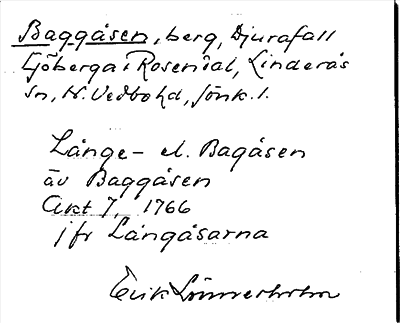 Baggåsen, berg, Djurafall
Sjöberga, Rosendal, Linderås
sn, N. Vedbo hd, Jönk. l.
Långe- el. Bagåsen
äv Baggåsen
Akt 7, 1766
jfr Långåsarna
Erik